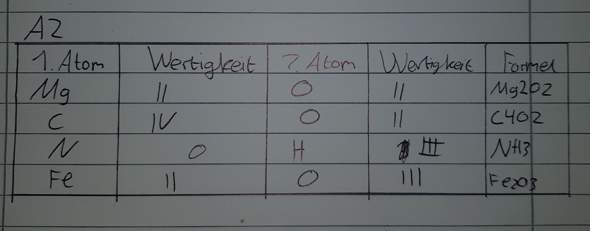 A2
1. Atom Wertigkeit 2. Atom Wertigkeit Formel
Mg II O II Mg2O2
C IV O II C4O2
N O H III NH3
Fe II O III Fe2O3